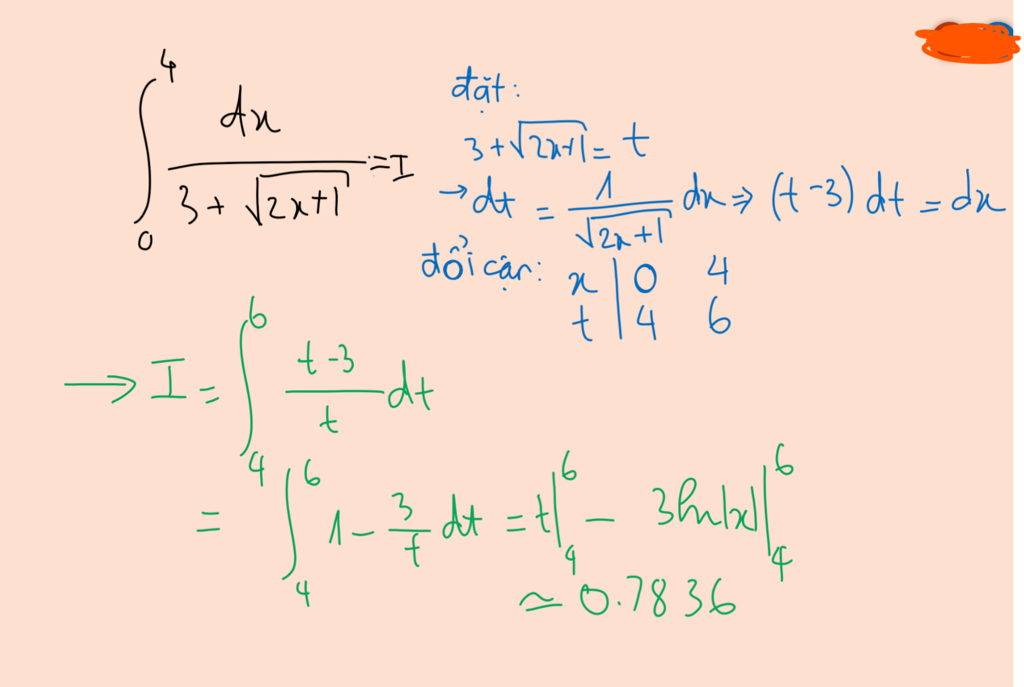 ∫₀⁴ dx / (3 + √(2x+1)) = I
đặt:
3 + √(2x+1) = t
→ dt = 1/√(2x+1) dx ⇒ (t-3) dt = dx
đổi cận: x | 0 4
t | 4 6
→ I = ∫₄⁶ (t-3)/t dt
= ∫₄⁶ 1 - 3/t dt = t|₄⁶ - 3ln|x||₄⁶
≃ 0.7836